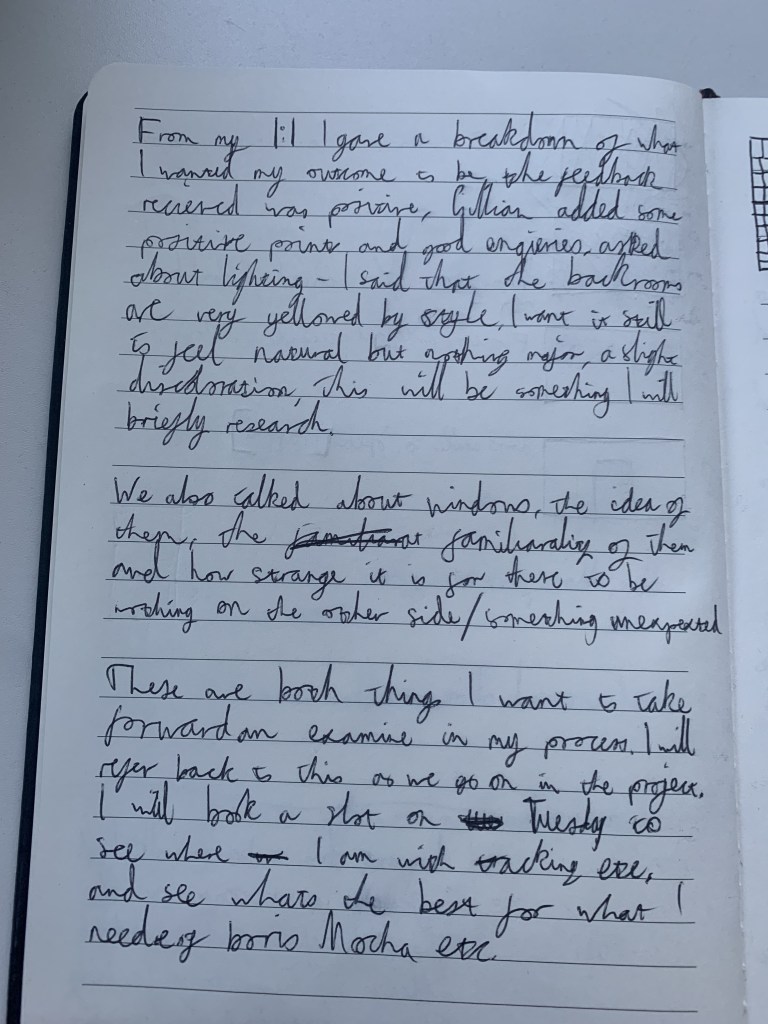 From my 1:1 I gave a breakdown of what
I wanted my outcome to be, the feedback
recieved was positive, Gillian added some
positive points and good enqieries, asked
about lighting - I said that the backrooms
are very yellowed by style, I want it still
to feel natural but nothing major, a slight
discoloration, this will be something I will
briefly research.
We also talked about windows, the idea of
them, the familiarality of them
and how strange it is for there to be
nothing on the other side/something unexpected
These are both things I want to take
forward an examine in my process. I will
refer back to this as we go on in the project.
I will book a slot on Tuesday to
see where I am with tracking etc,
and see whats the best for what I
need eg boris Mocha etc.